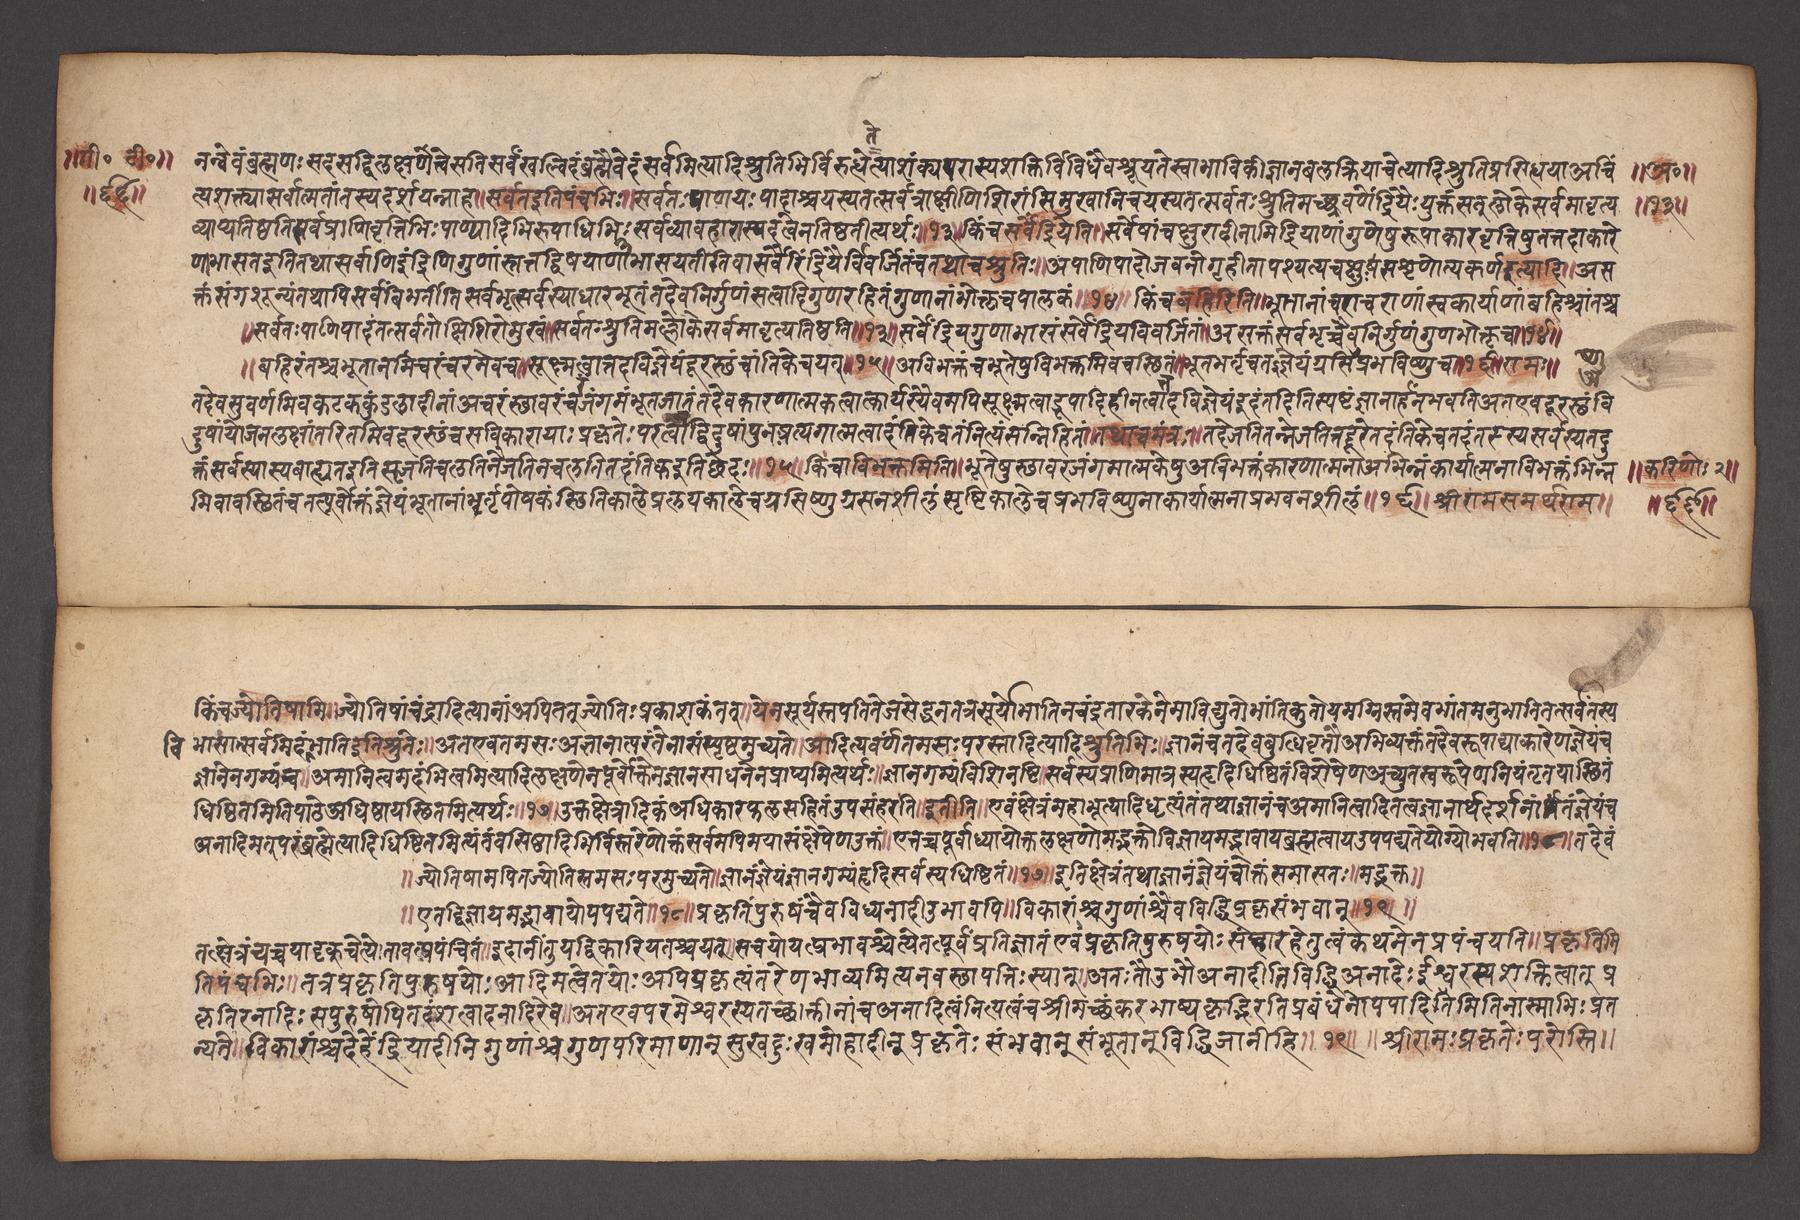 ॥गी० टी०॥
॥६६॥
नन्वेवंब्रह्मणः सदसद्विलक्षणत्वेसतिसर्वंखल्विदंब्रह्मैवेदंसर्वमित्यादिश्रुतिभिर्विरुध्येतेत्याशंक्यपरास्यशक्तिर्विविधैवश्रूयतेस्वाभाविकीज्ञानबलक्रियाचेत्यादिश्रुतिप्रसिद्धयाअचिं
त्यशक्त्यासर्वात्मतांतस्यदर्शयन्नाह॥सर्वतइतिपंचभिः॥सर्वतःपाणयः पादाश्चयस्यतत्सर्वत्राक्षीणिशिरांसिमुखानिचयस्यतत्सर्वतः श्रुतिमच्छ्रवणेंद्रियैः युक्तंसत्लोकेसर्वमावृत्य
व्याप्यतिष्ठतिसर्वप्राणिवृत्तिभिः पाण्यादिभिरुपाधिभिः सर्वव्यावहारास्पदत्वेनतिष्ठतीत्यर्थः॥१३॥किंचसर्वेंद्रियेति॥सर्वेषांचक्षुरादीनामिंद्रियाणांगुणेषुरूपाकारवृत्तिषुतत्तदाकारे
णभासतइतितथासर्वाणिइंद्रियाणिगुणांस्तत्तद्विषयाणांभासयतीतिवासर्वैरिंद्रियैर्विवर्जितंचतथाचश्रुतिः॥अपाणिपादोजवनोगृहीतापश्यत्यचक्षुःसशृणोत्यकर्णइत्यादि॥अस
क्तंसंगशून्यंतथापिसर्वंबिभर्तीतिसर्वभृत्सर्वस्याधारभूतंतदेवनिर्गुणंसत्वादिगुणरहितंगुणानांभोक्तृचपालकं॥१४॥ किंचबहिरिति॥भूतानांचराचराणांस्वकार्याणांबहिश्चांतश्च
॥सर्वतःपाणिपादंतत्सर्वतोक्षिशिरोमुखं॥सर्वतःश्रुतिमल्लोकेसर्वमावृत्यतिष्ठति॥१३॥सर्वेंद्रियगुणाभासंसर्वेंद्रियविवर्जितं॥असक्तंसर्वभृच्चैवनिर्गुणंगुणभोक्तृच॥१४॥
॥बहिरंतश्चभूतानामचरंचरमेवच॥सूक्ष्मत्वात्तदविज्ञेयंदूरस्थंचांतिकेचयत्॥१५॥अविभक्तंचभूतेषुविभक्तमिवचस्थितं॥भूतभर्तृचतज्ज्ञेयंग्रसिष्णुप्रभविष्णुच॥१६॥रामः॥
तदेवसुवर्णमिवकटककुंडलादीनांअचरंस्थावरंचरंजंगमंभूतजातंतदेवकारणात्मकत्वात्कार्यस्यैवमपिसूक्ष्मत्वाद्रूपादिहीनत्वात्तदविज्ञेयंइदंतदितिस्पष्टंज्ञानार्हंनभवतिअतएवदूरस्थंवि
दुषांयोजनलक्षांतरितमिवदूरस्थंचसविकारायाः प्रकृतेः परत्वाद्विदुषांपुनःप्रत्यगात्मत्वादंतिकेचतंनित्यंसन्निहितं॥तथाचमंत्रः॥तदेजतितन्नैजतितद्दूरेतदंतिकेचतदंतरस्यसर्वस्यतदु
क्तंसर्वस्यास्यबाह्यतइतिसृजतिचलतिनैजतिनचलतितदंतिकइतिछेदः॥१५॥किंचाविभक्तमिति॥भूतेषुस्थावरजंगमात्मकेषुअविभक्तंकारणात्मनाअभिन्नंकार्यात्मनाविभक्तंभिन्न
मिवावस्थितंचतत्पूर्वोक्तंज्ञेयंभूतानांभर्तृपोषकंस्थितिकालेप्रलयकालेचग्रसिष्णुग्रसनशीलंसृष्टिकालेचप्रभविष्णुनाकार्यात्मनाप्रभवनशीलं॥१६॥श्रीरामसमर्थराम॥
॥अ०॥
॥१३॥
॥६६॥
किंचज्योतिषामिति॥ज्योतिषांचंद्रादित्यानांअपितत्ज्योतिः प्रकाशकंतत्॥येनसूर्यस्तपतितेजसेद्धःनतत्रसूर्योभातिनचंद्रतारकंनेमाविद्युतोभांतिकुतोयमग्निस्तमेवभांतमनुभातिसर्वंतस्य
भासासर्वमिदंविभातिइतिश्रुतेः॥अतएवतमसः अज्ञानात्परंतेनासंस्पृष्टमुच्यते॥आदित्यवर्णंतमसः परस्तादित्यादिश्रुतिभिः॥ज्ञानंचतदेवबुद्धिवृत्तौअभिव्यक्तंतदेवरूपाद्याकारेणज्ञेयंच
ज्ञानेनगम्यंच॥अमानित्वमदंभित्वमित्यादिलक्षणेनपूर्वोक्तेनज्ञानसाधनेनप्राप्यमित्यर्थः॥ज्ञानगम्यंविशिनष्टि॥सर्वस्यप्राणिमात्रस्यहृदिधिष्टितंविशेषेणअच्युतस्वरूपेणनियंतृतयास्थितं
धिष्ठितमितिपाठेअधिष्ठायस्थितमित्यर्थः॥१७॥उक्तंक्षेत्रादिकंअधिकारफलसहितंउपसंहरति॥इतीति॥एवंक्षेत्रंमहाभूत्यादिधृत्यंतंतथाज्ञानंचअमानित्वादितत्वज्ञानार्थदर्शनांतंज्ञेयंच
अनादिमत्परंब्रह्मेत्यादिधिष्टितमित्यंतंवसिष्ठादिभिर्विस्तरेणोक्तंसर्वमपिमयासंक्षेपेणउक्तं॥एतच्चपूर्वाध्यायोक्तलक्षणोमद्भक्तोविज्ञायमद्भावायब्रह्मत्वायउपपद्यतेयोग्योभवति॥१८॥तदेवं
॥ज्योतिषामपितज्योतिस्तमसःपरमुच्यते॥ज्ञानंज्ञेयंज्ञानगम्यंहृदिसर्वस्यधिष्टितं॥१७॥इतिक्षेत्रंतथाज्ञानंज्ञेयंचोक्तंसमासतः॥मद्भक्त॥
॥एतद्विज्ञायमद्भावायोपपद्यते॥१८॥प्रकृतिंपुरुषंचैवविध्यनादीउभावपि॥विकारांश्चगुणांश्चैवविद्धिप्रकृतसंभवान्॥१९॥
तत्क्षेत्रंयच्चयादृक्चेत्येतावत्प्रपंचितं॥इदानींतुयद्विकारियतश्चयत्॥सचयोयत्प्रभावश्चेत्येतत्पूर्वंप्रतिज्ञातंएवंप्रकृतिपुरुषयोः संसारहेतुत्वंकथमेनप्रपंचयति॥प्रकृतिमि
तिपंचभिः॥तत्रप्रकृतिपुरुषयोः आदिमत्वेतयोः अपिप्रकृत्यंतरेणभाव्यमित्यनवस्थापत्तिः स्यात्॥अतःतौउभौअनादीत्तिविद्धिअनादेः ईश्वरस्यशक्तित्वात्प्र
कृतिरनादिः सपुरुषोपितदंशत्वादनादिरेव॥अतएवपरमेश्वरस्यतच्छक्तीनांचअनादित्वंनित्यत्वंचश्रीमच्छंकरभाष्यकृद्भिरतिप्रबंधेनोपपादितमितिनास्माभिः प्रत
न्यते॥विकारांश्चदेहेंद्रियादीनिगुणांश्चगुणपरिमाणान्सुखदुःखमोहादीन्प्रकृतेः संभवान्संभूतान्विद्धिजानीहि॥१९॥ ॥श्रीरामःप्रकृतेःपरोस्ति॥
वि